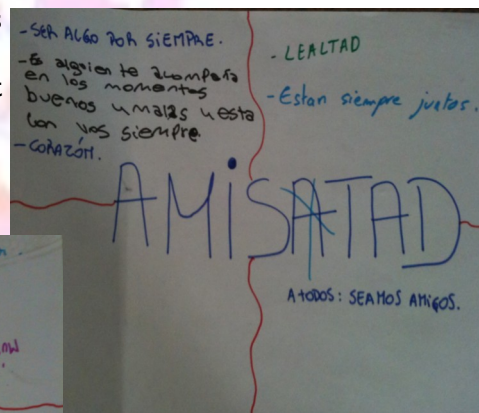 -SER ALGO POR SiEMPRE.
-Es alguien te acompaña
en los momentos
buenos y malas y esta
con vos siempre
-CORAZÓN.
- LEALTAD
-Estan siempre juntos.
AMiSATAD
A TODOS: SEAMOS AMIGOS.